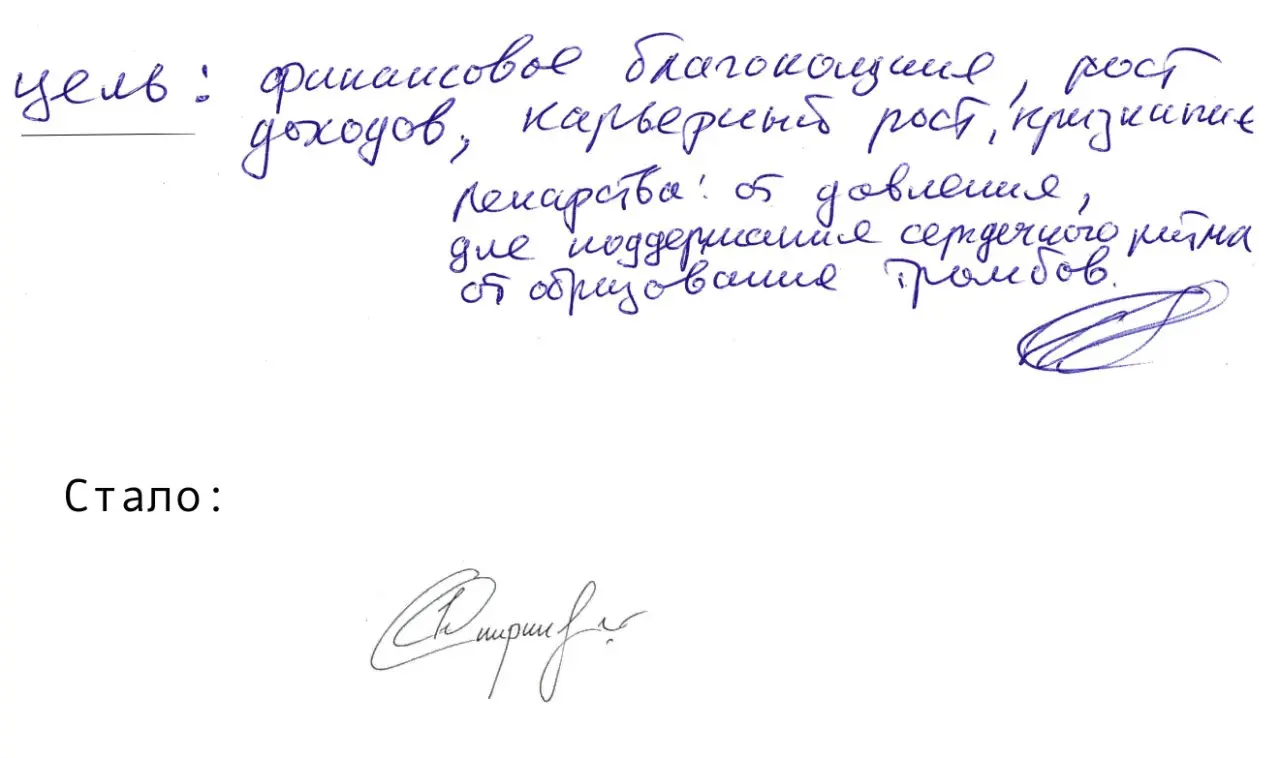 цель: финансовое благополучие, рост
доходов, карьерный рост, признание
лекарства: от давления,
для поддержания сердечного ритма
от образования тромбов.
Стало: